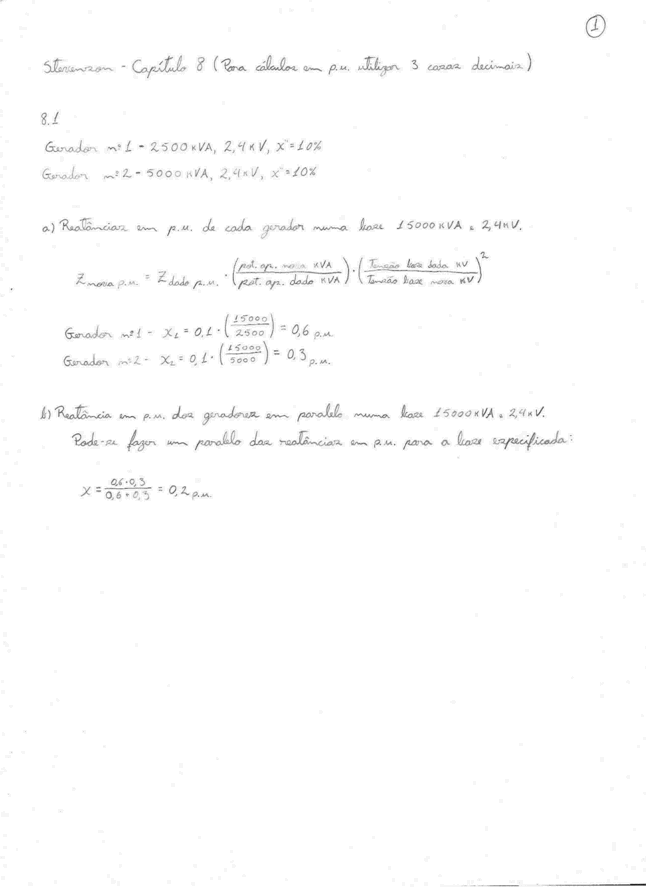 1
Stevenson - Capítulo 8 (Para cálculos em p.u. utilizar 3 casas decimais)
8.1
Gerador nº 1 - 2500 KVA, 2,4 KV, x"=10%
Gerador nº 2 - 5000 KVA, 2,4 KV, x"=10%
a) Reatâncias em p.u. de cada gerador numa base 15000 KVA e 2,4 KV.
Z nova p.u. = Z dado p.u. · (pot. ap. nova KVA / pot. ap. dado KVA) · (Tensão base dada KV / Tensão base nova KV)²
Gerador nº 1 - X_L = 0,1 · (15000/2500) = 0,6 p.u.
Gerador nº 2 - X_L = 0,1 · (15000/5000) = 0,3 p.u.
b) Reatância em p.u. dos geradores em paralelo numa base 15000 KVA e 2,4 KV.
Pode-se fazer um paralelo das reatâncias em p.u. para a base especificada:
X = 0,6·0,3 / 0,6+0,3 = 0,2 p.u.